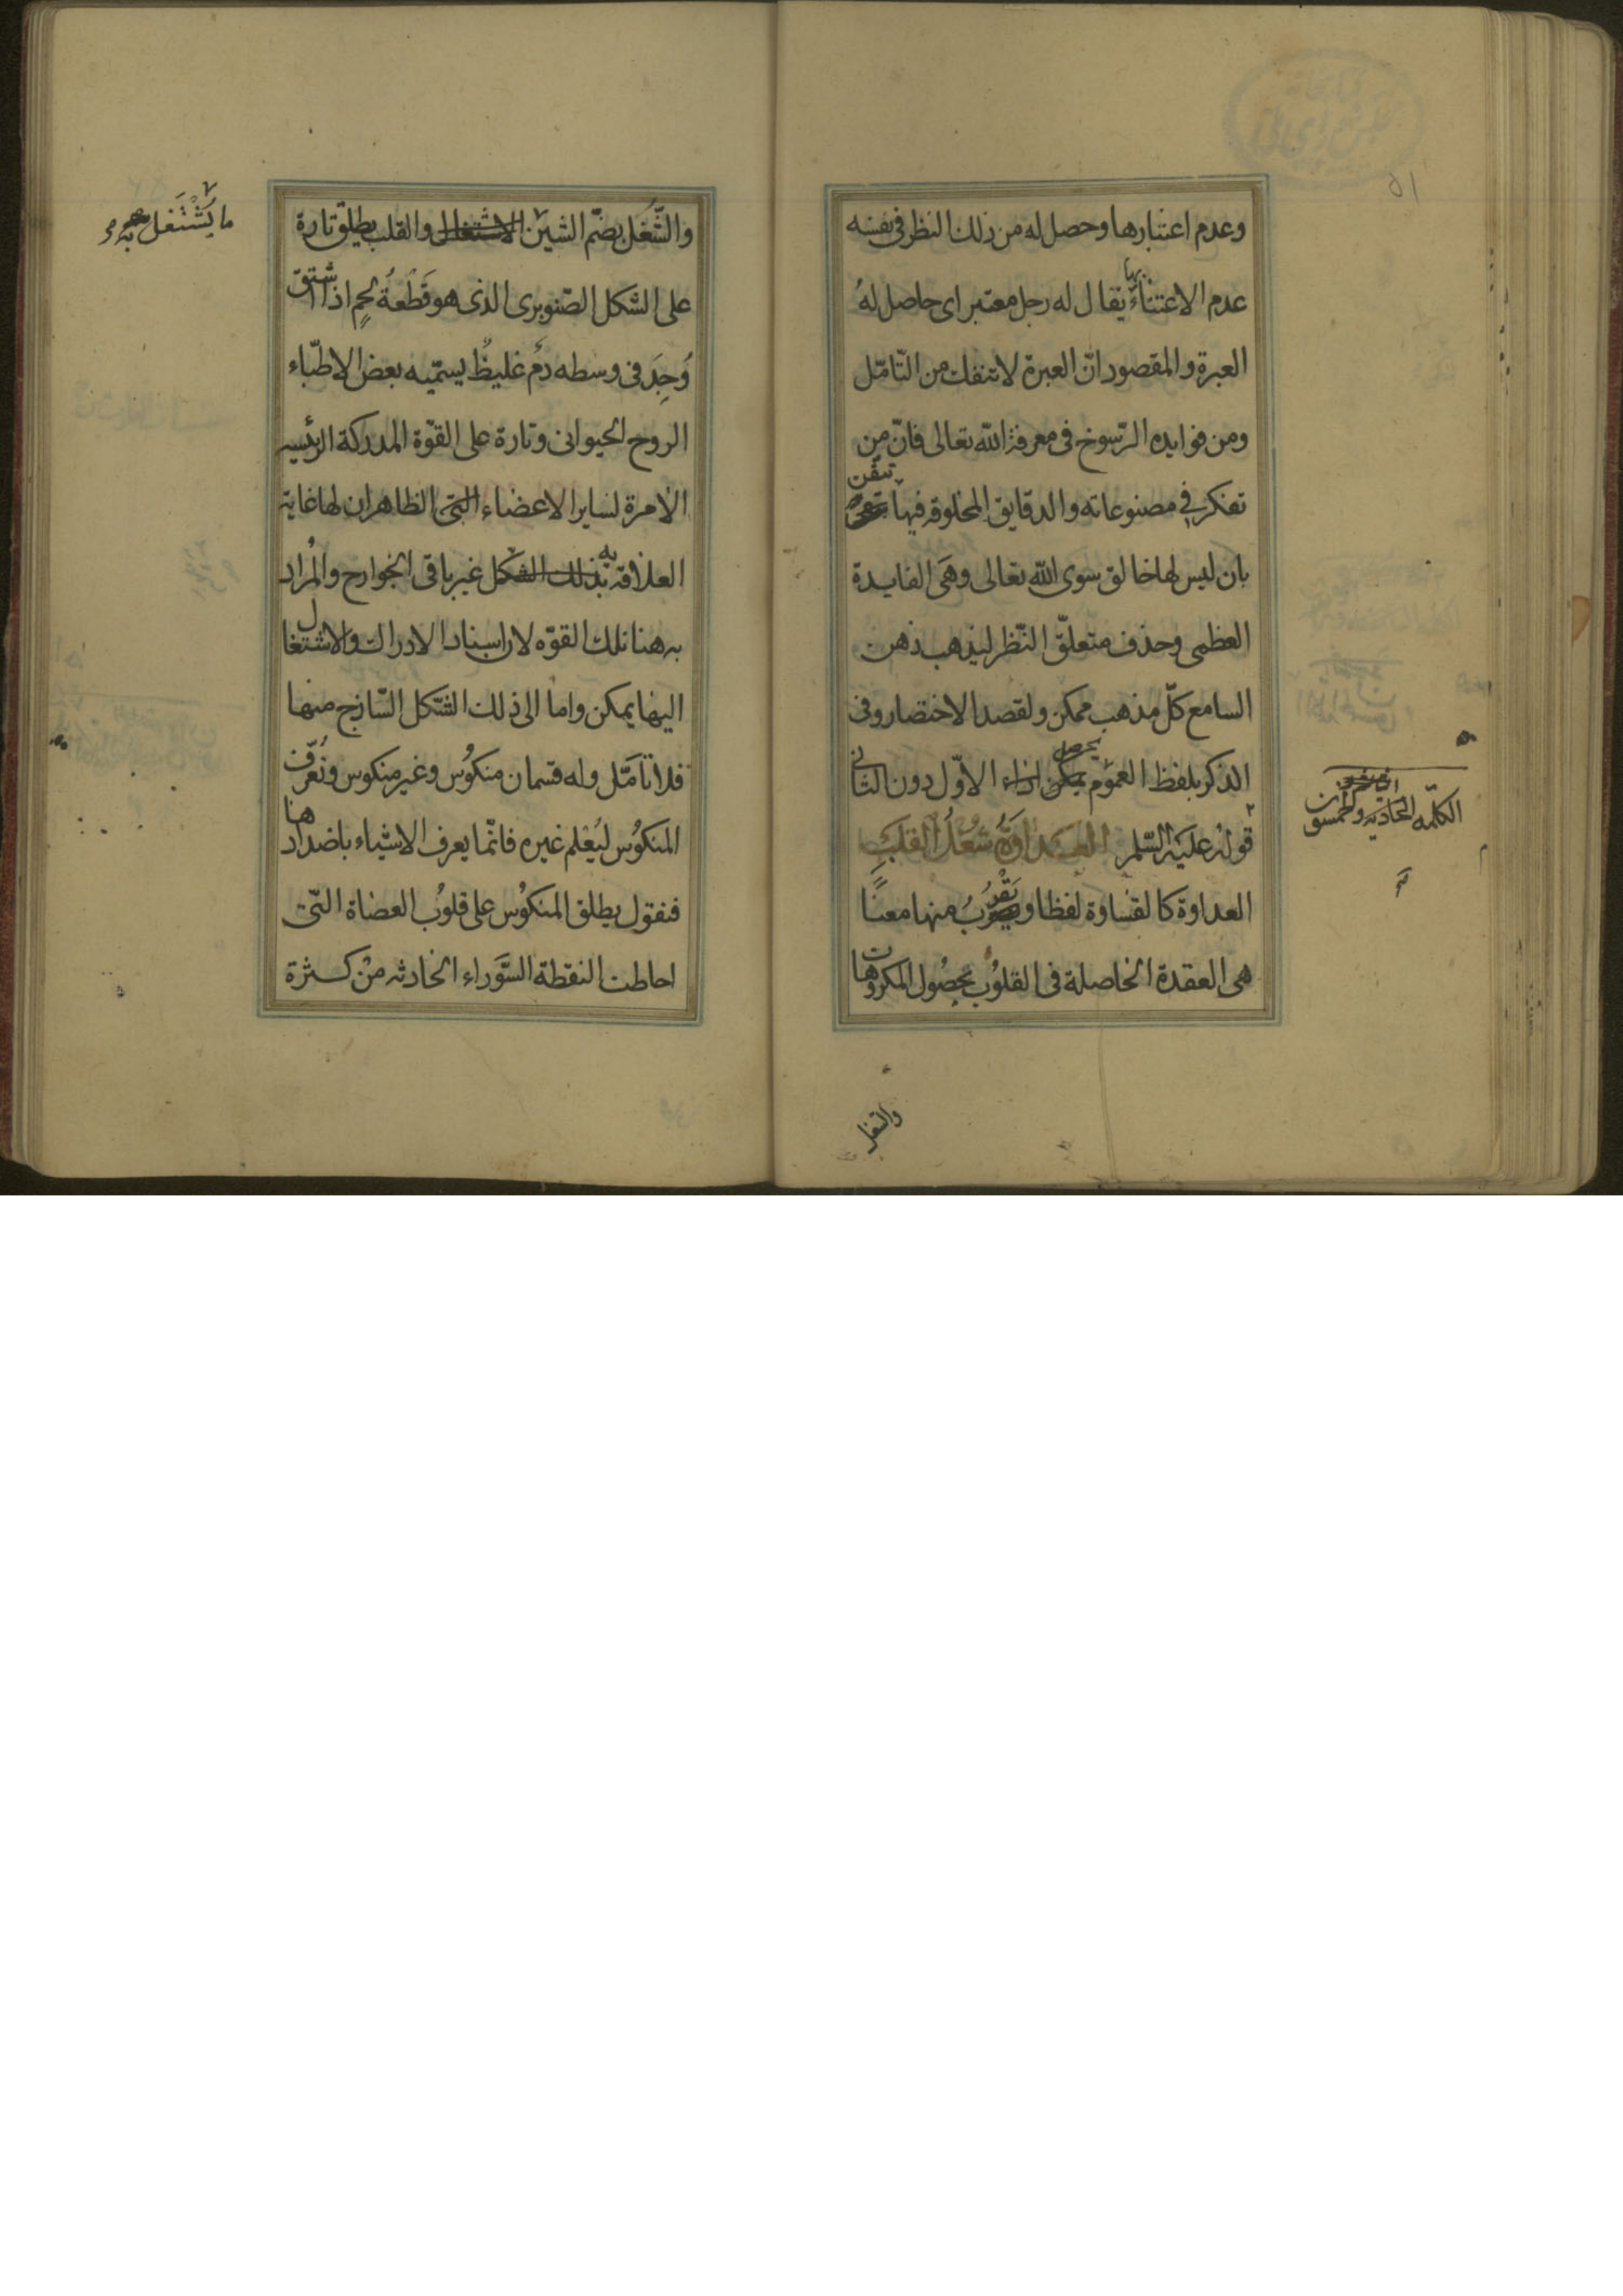 وعدم اعتبارها وحصل له من ذلك النظر فى نفسه
عدم الاعتناء بها يقال له رجل معتبر اى حاصل له
العبرة والمقصود انّ العبرة لا تنفك من التّامّل
ومن فوايده الرّسوخ فى معرفة اللّه تعالى فانّ من
تفكر فى مصنوعاته والدقايق المخلوقه فيها تيقّن
بان ليس لها خالق سوى اللّه تعالى وهى الفايدة
العظمى وحذف متعلّق النّظر ليذهب ذهن
السامع كلّ مذهب ممكن ولقصد الاختصار وفى
الذكر بلفظ العموم يحصل الاوّل دون الثانى
قوله عليه السّلم العداوة شغل القلب
العداوة كالقساوة لفظا ويقرب منها معنًا
هى العقدة الحاصلة فى القلوب بحصول المكروهات
الكلمه الحاديه والخمسون
٥١
والشّغل بضمّ الشين الاشتغال والقلب يطلق تارة
ما يشتغل به
على الشكل الصّنوبرى الذى هو قطعة لحم اذا شتق
وُجِدَ فى وسطه دم غليظ يسمّيه بعض الاطبّاء
الروح الحيوانى وتارة على القوّة المدركة الرئيسه
الآمرة لساير الاعضاء التى الظاهر ان لها غاية
العلاقه به بذلك الشكل غير باقى الجوارح والمراد
به هنا تلك القوّه لان اسناد الادراك والاشتغال
اليها يمكن واما الى ذلك الشكل السّاذج منها
فلا تامّل وله قسمان منكوس وغير منكوس ونعرّف
المنكوس ليعلم غيره فانّما يعرف الاشياء باضدادها
فنقول يطلق المنكوس على قلوب العصاة التى
احاطت النقطة السّوداء الحادثه من كثرة